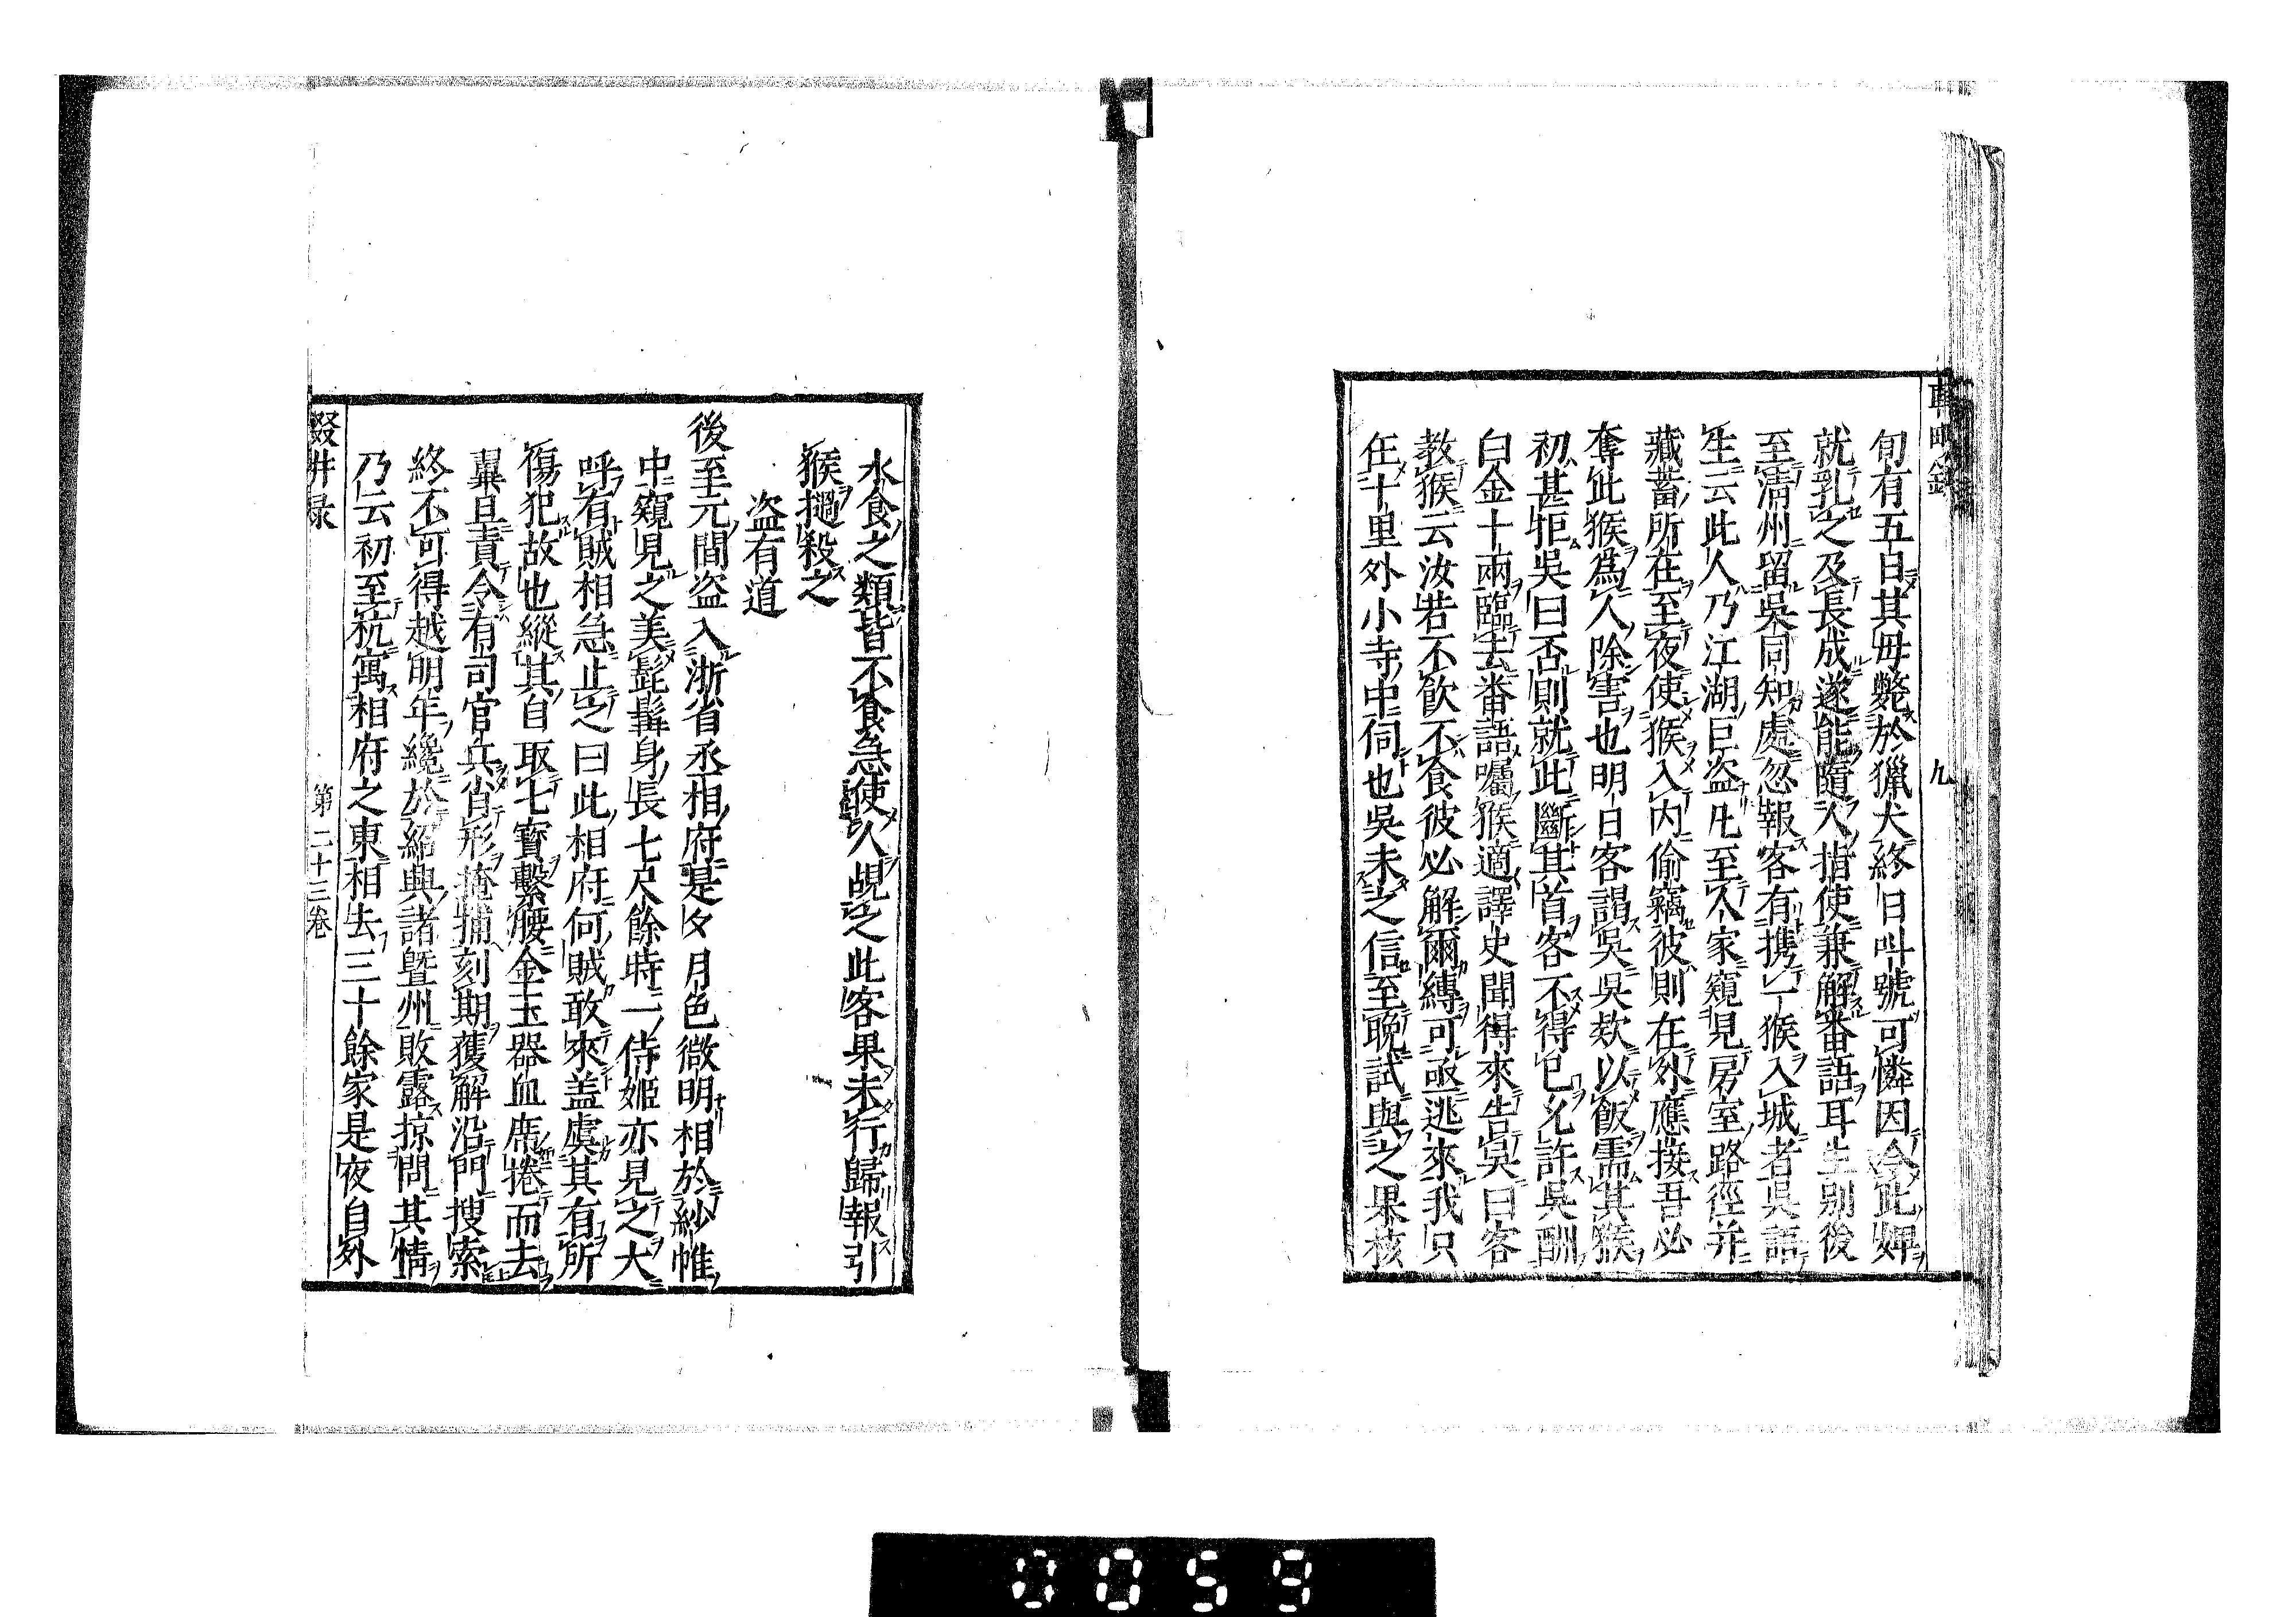 旬有五日其母斃於獵犬終日呌號可憐因令此婢
就乳之及長成遂能隨人指使兼解番語耳生別後
至清州留吳同知處忽報客有携一猴入城者吳語
生云此人乃江湖巨盗凡至人家窺見房室路徑并
藏蓄所在至夜使猴入内偷竊彼則在外應接吾必
奪此猴爲人除害也明日客謁吳吳欵以飯需其猴
初甚拒吳曰否則就此斷其首客不得已允許吳酬
白金十兩臨去番語囑猴適譯史聞得來告吳曰客
教猴云汝若不飲不食彼必解爾縛可亟逃來我只
在十里外小寺中伺也吳未之信至晩試與之果核
九
水食之類皆不食急使人覘之此客果未行歸報引
猴撾殺之
盗有道
後至元間盗入浙省丞相府是夕月色微明相於紗帷
中窺見之美髭髯身長七尺餘時一侍姬亦見之大
呼有賊相急止之曰此相府何賊敢來盖虞其有所
傷犯故也縱其自取七寳繫腰金玉器皿席捲而去
翼旦責令有司官兵肖形掩捕刻期獲解沿門搜索
終不可得越明年纔於紹興諸曁州敗露掠問其情
乃云初至杭寓相府之東相去三十餘家是夜自外
第二十三卷